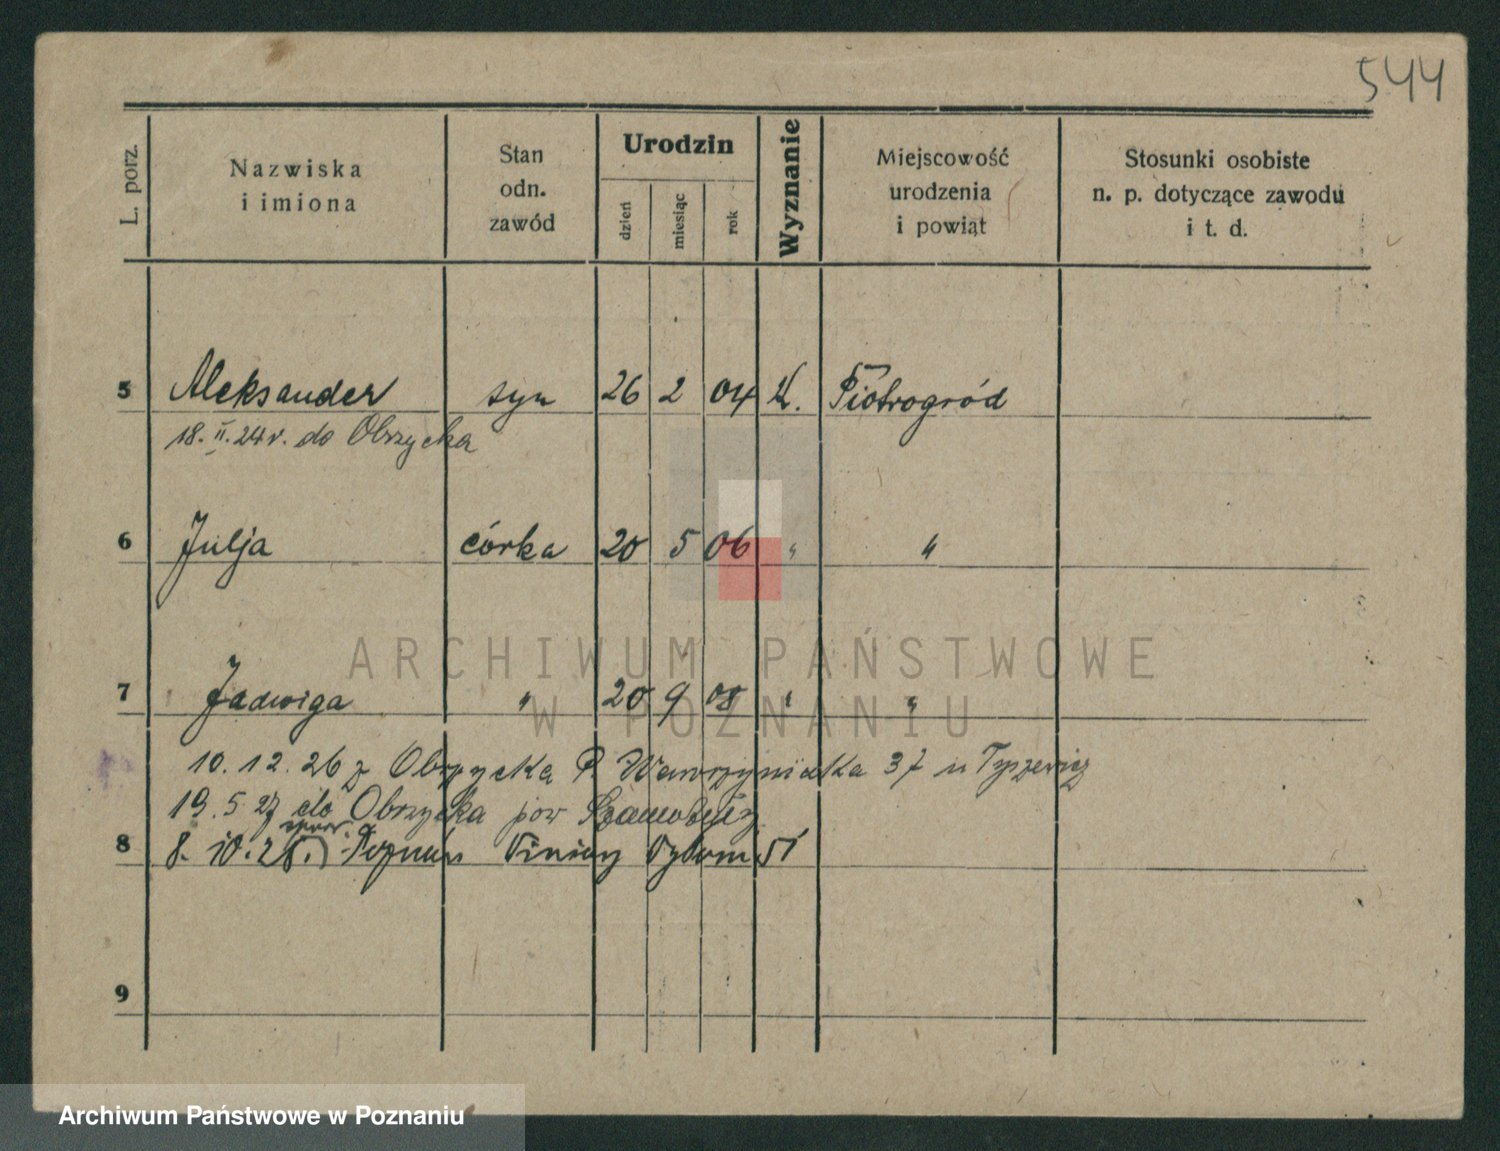 544
L. porz.
Nazwiska i imiona
Stan odn. zawód
Urodzin
dzień miesiąc rok
Wyznanie
Miejscowość urodzenia i powiat
Stosunki osobiste n. p. dotyczące zawodu i t. d.
5 Aleksander syn 26 2 04 K. Piotrogród
18. II. 24 r. do Obrzycka
6 Julja córka 20 5 06 " "
7 Jadwiga " 20 9 08 " "
10. 12. 26 z Obrzycka P. Wawrzyniaka 37 u Tyszewicz
19. 5. 27 do Obrzycka pow Szamotuły
8 8. 10. 28. Poznań
9
ARCHIWUM PAŃSTWOWE
W POZNANIU
Archiwum Państwowe w Poznaniu